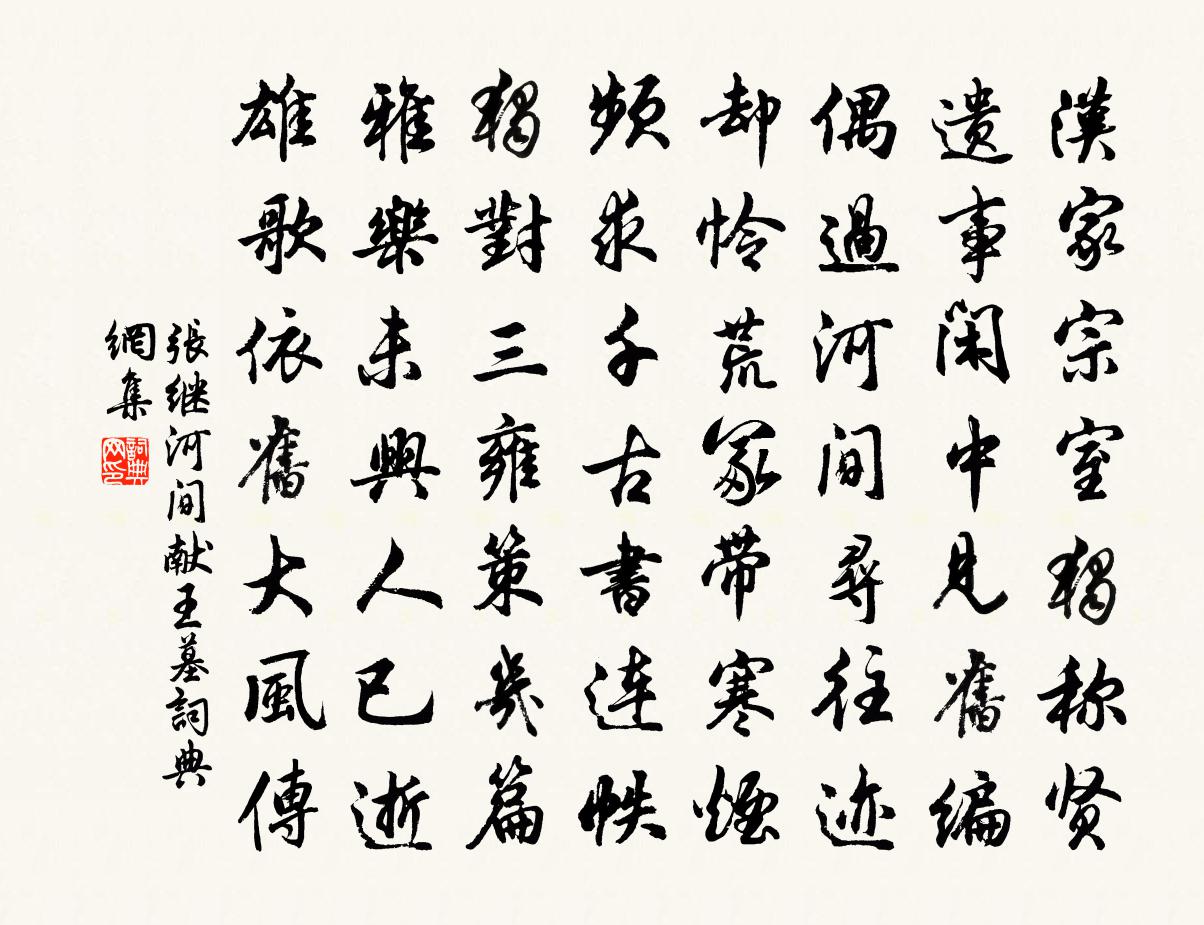 漢家宗室獨称贤
遗事闲中見舊编
偶過河间尋往迹
却怜荒冢带寒煙
頻求千古書连帙
獨對三雍策幾篇
雅樂未興人已逝
雄歌依舊大風傳
張继河间献王墓詞典
網集
詞典网印